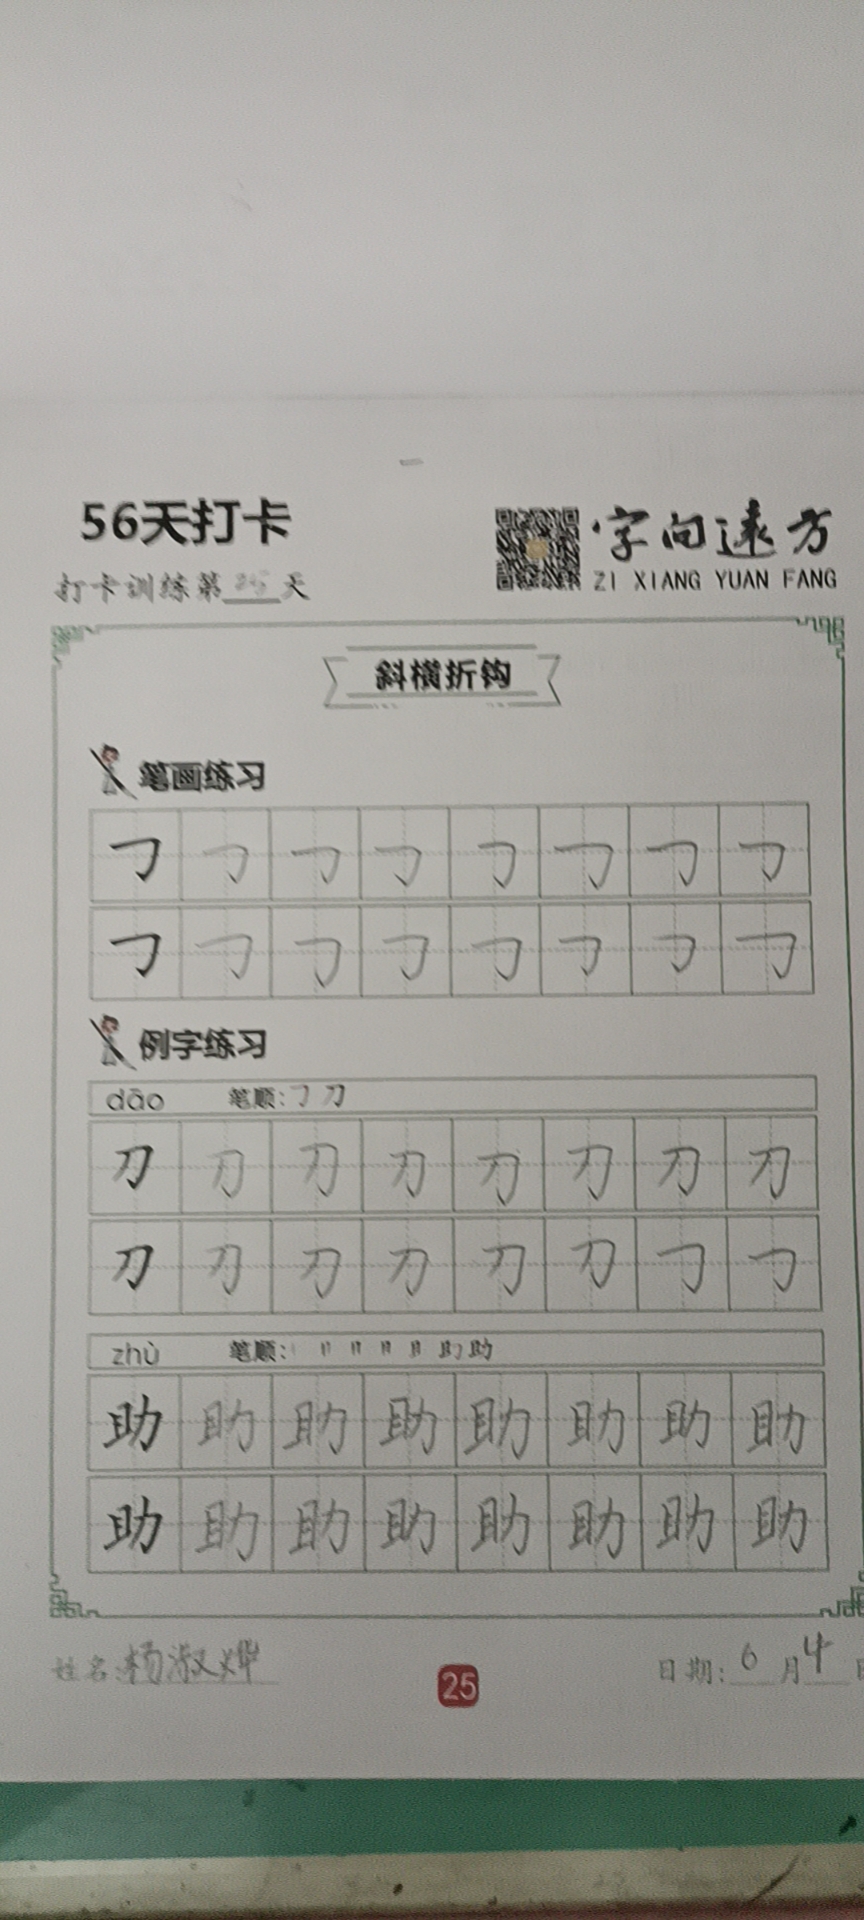 56天打卡
字向远方
ZI XIANG YUAN FANG
打卡训练第25天
斜横折钩
笔画练习
㇆ ㇆ ㇆ ㇆ ㇆ ㇆ ㇆ ㇆
㇆ ㇆ ㇆ ㇆ ㇆ ㇆ ㇆ ㇆
例字练习
dāo 笔顺:㇆ 刀
刀 刀 刀 刀 刀 刀 刀 刀
刀 刀 刀 刀 刀 刀 ㇆ ㇆
zhù 笔顺: 助
助 助 助 助 助 助 助 助
助 助 助 助 助 助 助 助
姓名:杨淑烨
25
日期:6月4日